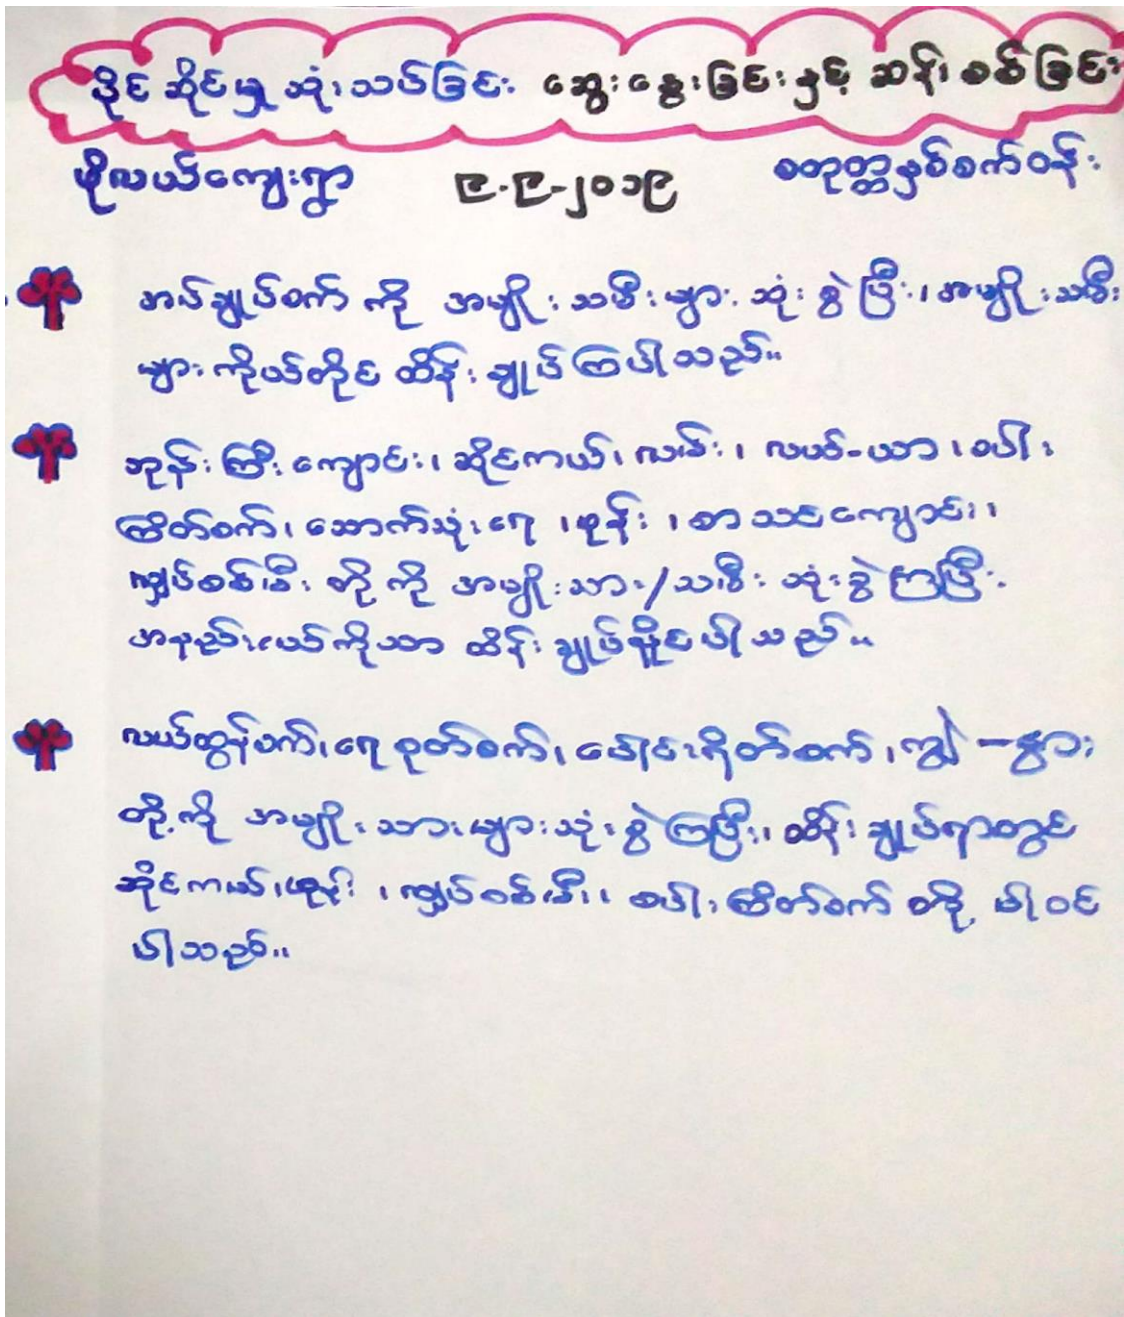 ပိုင်ဆိုင်မှု သုံးသပ်ခြင်း ဆွေးနွေးခြင်းနှင့် ဆန်းစစ်ခြင်း
ဖိုလယ်ကျေးရွာ ၉-၉-၂၀၁၉ စတုတ္ထနှစ်စက်ဝန်း
အပ်ချုပ်စက် ကို အမျိုးသမီးများ သုံးစွဲပြီး၊ အမျိုးသမီး
များ ကိုယ်တိုင် ထိန်းချုပ်ကြပါသည်။
ဘုန်းကြီးကျောင်း၊ ဆိုင်ကယ်၊ လမ်း၊ လယ်-ယာ၊ စပါး
ကြိတ်စက်၊ သောက်သုံးရေ၊ ဖုန်း၊ စာသင်ကျောင်း၊
လျှပ်စစ်မီး တို့ကို အမျိုးသား/သမီး သုံးစွဲကြပြီး
အနည်းငယ်ကိုသာ ထိန်းချုပ်နိုင်ပါသည်။
လယ်ထွန်စက်၊ ရေစုတ်စက်၊ ပေါင်းရိတ်စက်၊ ကျွဲ-နွား
တို့ကို အမျိုးသားများသုံးစွဲကြပြီး၊ ထိန်းချုပ်ရာတွင်
ဆိုင်ကယ်၊ ဖုန်း၊ လျှပ်စစ်မီး၊ စပါးကြိတ်စက် တို့ ပါဝင်
ပါသည်။